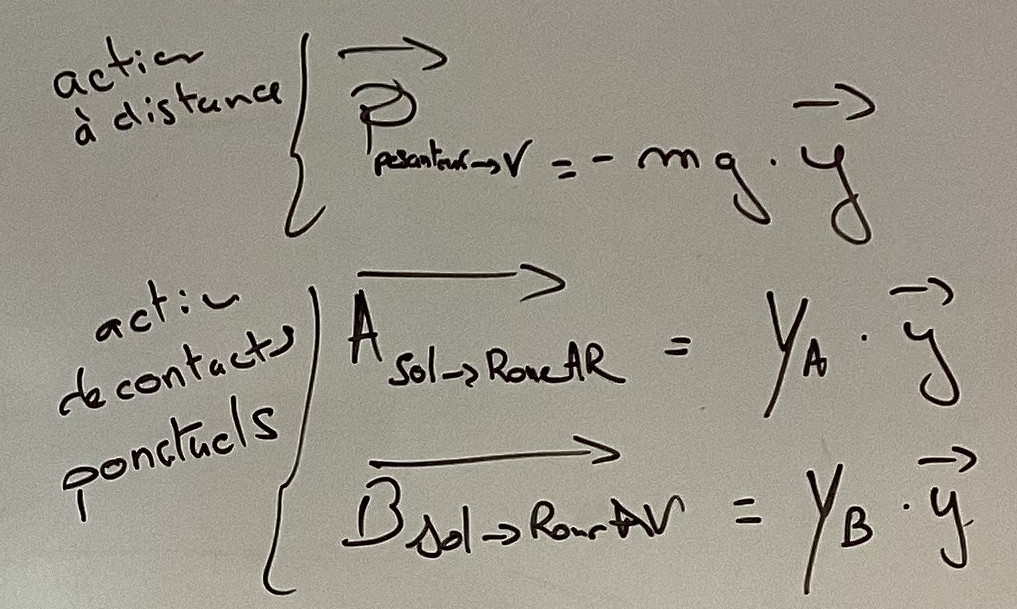 action
à distance
P pesanteur→V = - mg · y
action
de contacts
ponctuels
A Sol→RoueAR = YA · y
B Sol→RoueAV = YB · y